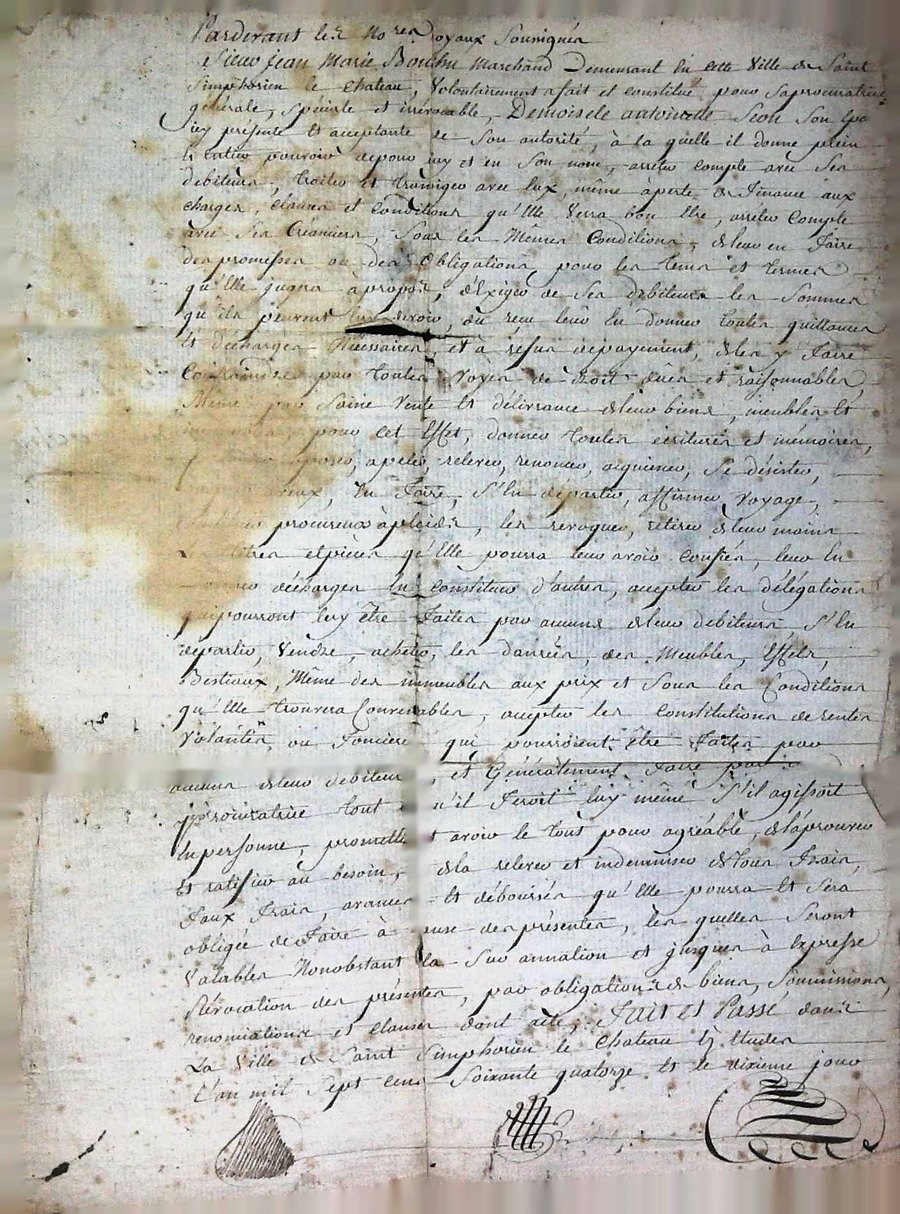 Pardevant les Nores Royaux Souvignés
Sieur Jean Marie Bouchu Marchand Demeurant En cette Ville de Saint
Simphorien le Chateau, Volontairement a fait et constitué pour sa procuratrice
generale, speciale et irrévocable, Demoiselle antoinette Seon Son Epo
icy présente Et acceptante de Son autorité, à la quelle il donne plein
Et entier pouvoir de pour luy et en Son nom, arrêter compte avec Ses
debiteurs, traiter et transiger avec Eux, même a perte de finance aux
charges, clauses et Conditions qu'Elle Verra bon Etre, arrêter Compte
avec Ses Créanciers, Sous les Mêmes Conditions, & leur en faire
des promesses ou des Obligations, pour les tems et termes
qu'Elle jugera à propos, d'Exiger de Ses debiteurs les Sommes
qu'ils peuvent luy devoir, du recu leur En donner toutes quittances
Et décharges Nécessaires, et à refus de payement, de les y faire
Contraindre par toutes voyes de droit dües et raisonnables,
Même par Saisie Vente Et délivrance de leur biens, meubles Et
pour cet Effet, donner toutes écritures et mémoires,
apeler, relever, renoncer, acquiescer, Se désister,
En faire, S'En départir, affirmer voyage,
procureurs à plaids, les revoquer, retirer de leur mains
titres et pièces qu'Elle pourra leur avoir confiés, leur En
décharges En constituer d'autres, accepter les délégations
qui pourront luy être faites par aucuns de leur debiteurs S'En
départir, Vendre, acheter, les danrées, des Meubles, Effets,
Bestiaux, Même des immeubles aux prix et Sous les Conditions
qu'Elle trouvera Convenables, accepter les Constitutions de rentes
Volantes, ou foncieres qui pourroient être faites par
aucuns de leur debiteurs, et Généralement faire par
procuratrice tout qu'il feroit luy même S'il agissoit
En personne, promettant avoir le tout pour agréable, & l'aprouver
Et ratifier au besoin, & la relever et indemniser de tous frais,
faux frais, avances Et déboursés qu'Elle pourra Et Sera
obligée de faire à cause des présentes, les quelles Seront
Valables Nonobstant la Sur annation et jusques à Expresse
Révocation des présentes, par obligations de biens, Soumissions,
renonciations et clauses dont acte, Fait et Passé dans
La Ville de Saint Simphorien le Chateau Ez Etudes
L'an mil Sept cens Soixante quatorze Et le dixieme jour